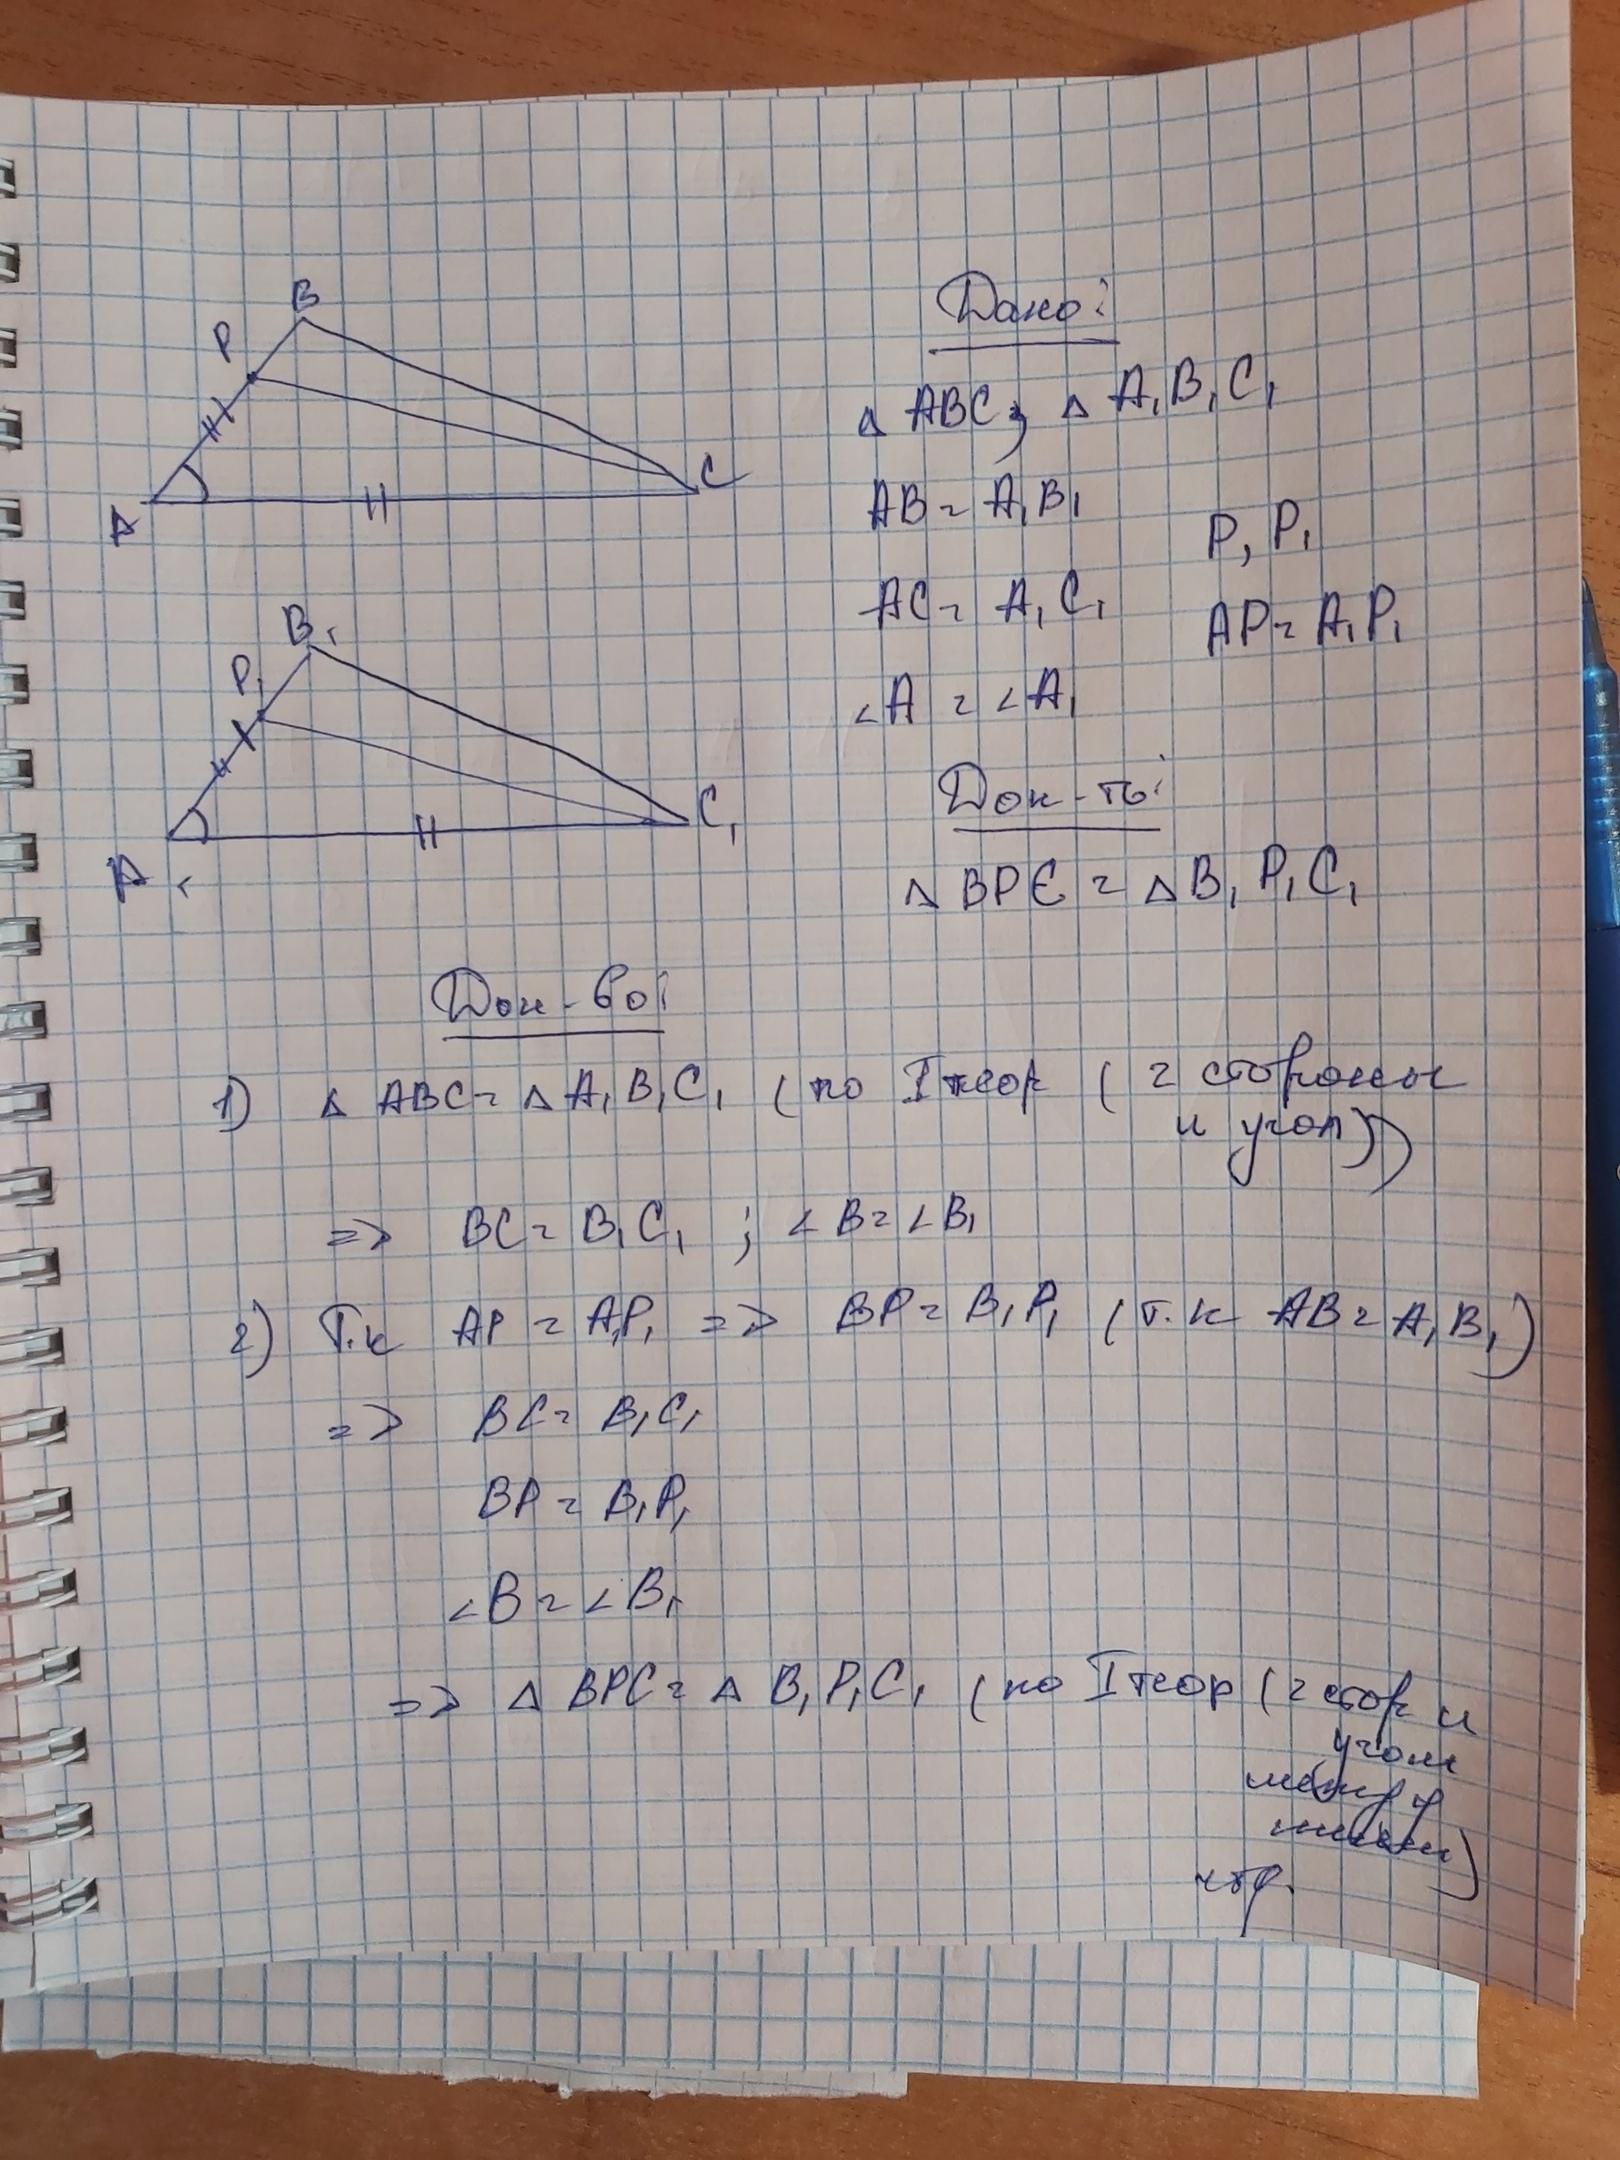 B
P
C
A
B₁
P₁
C₁
A₁
Дано:
△ ABC; △ A₁B₁C₁
AB = A₁B₁
P, P₁
AC = A₁C₁
AP = A₁P₁
∠A = ∠A₁
Док-ть:
△ BPC = △ B₁P₁C₁
Док-во:
1) △ ABC = △ A₁B₁C₁ (по I теор (2 стороны
и угол))
=> BC = B₁C₁ ; ∠B = ∠B₁
2) Т.к AP = A₁P₁ => BP = B₁P₁ (т.к AB = A₁B₁)
=> BC = B₁C₁
BP = B₁P₁
∠B = ∠B₁
=> △ BPC = △ B₁P₁C₁ (по I теор (2 стор и
угол
между
ними)
чтд.